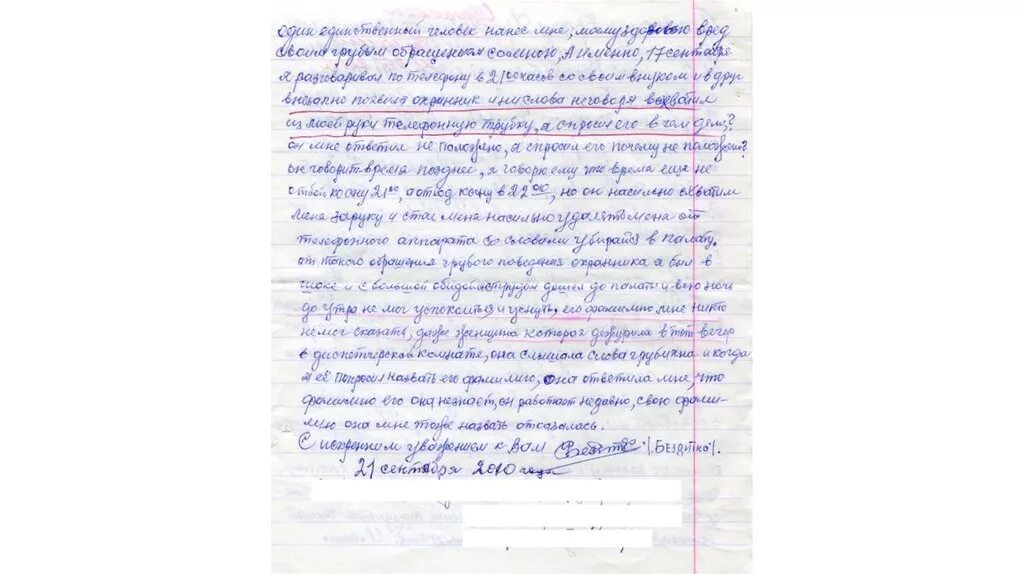 один единственный человек нанес мне, моему здоровью вред
своим грубым обращением со мною, А именно, 17 сентября
я разговаривал по телефону в 21 00 часов со своим внуком и вдруг
внезапно появился охранник и ни слова не говоря выхватил
из моей руки телефонную трубку, я спросил его в чем дело,?
он мне ответил не положено, я спросил его почему не положено?
он говодит время позднее, я говорю ему что время еще не
отбой ко сну 21 00, а отход ко сну в 22 00, но он насильно схватил
меня за руку и стал меня насильно удалять меня от
телефонного аппарата со словами убирайся в палату.
от такого обращения грубого поведения охранника я был в
шоке и с большой обидой и трудом дошел до палаты и всю ночь
до утра не мог успокоиться и уснуть, его фамилию мне никто
не мог сказать, даже женщина которая дежурила в тот вечер
в диспетчерской комнате, она слышала слова грубияна и когда
я её попросил назвать его фамилию, она ответила мне, что
фамилию его она незнает, он работает недавно, свою фами-
лию она мне тоже назвать отказалась.
С искренним уважением к Вам /.Бездитко./.
21 сентября 2010 года